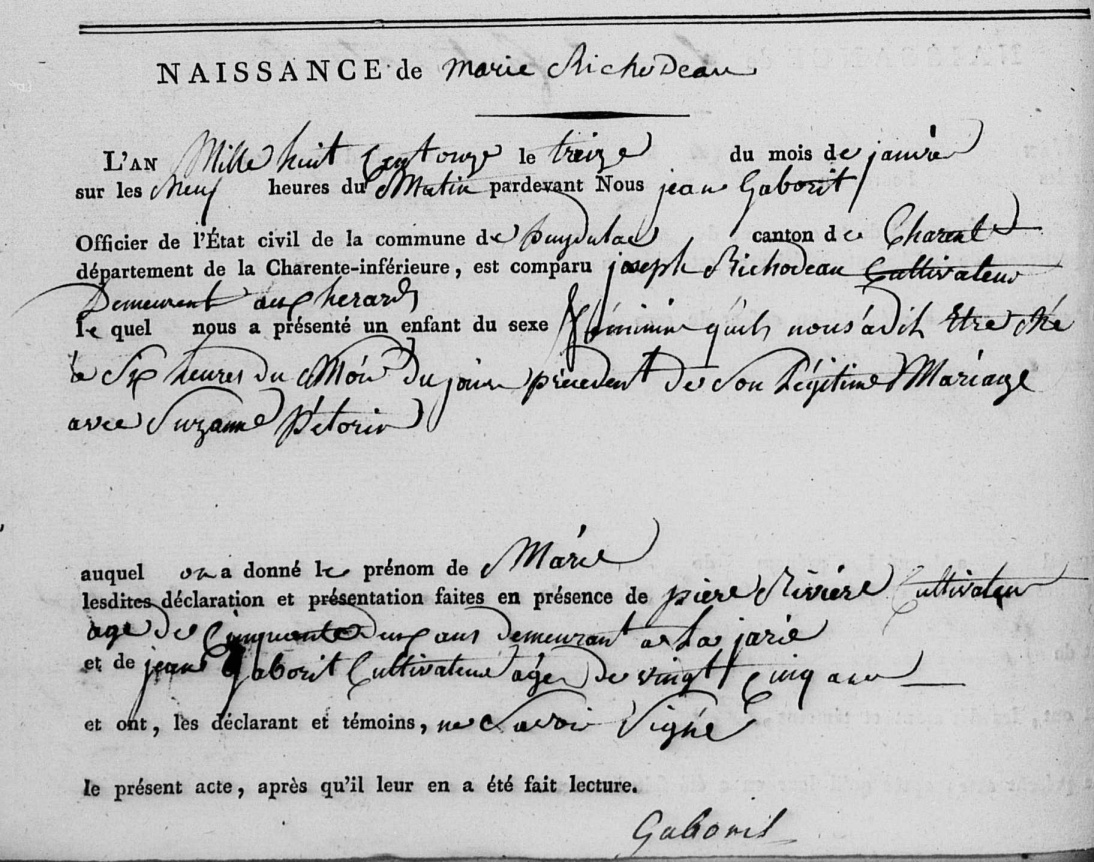 NAISSANCE de marie Richodeau
L'AN Mille huit Cent onze le treize du mois de janvier
sur les Neuf heures du Matin pardevant Nous jean Gaborit
Officier de l'État civil de la commune de puydulac canton de Charente
département de la Charente-inférieure, est comparu joseph Richodeau Cultivateur
Demeurent aux herards
le quel nous a présenté un enfant du sexe féminin qu'ils nous a dit Etre Né
à Six heures du Soir Du jour précedent de Son Légitime Mariage
avec Suzanne Pétorin
auquel on a donné le prénom de Marie
lesdites déclaration et présentation faites en présence de pière Rivière Cultivateur
age De Cinquante Deux ans demeurant a La jarie
et de jean Gaborit Cultivateur agé De vingt Cinq ans
et ont, les déclarant et témoins, ne Savoir Signé
le présent acte, après qu'il leur en a été fait lecture.
Gaborit